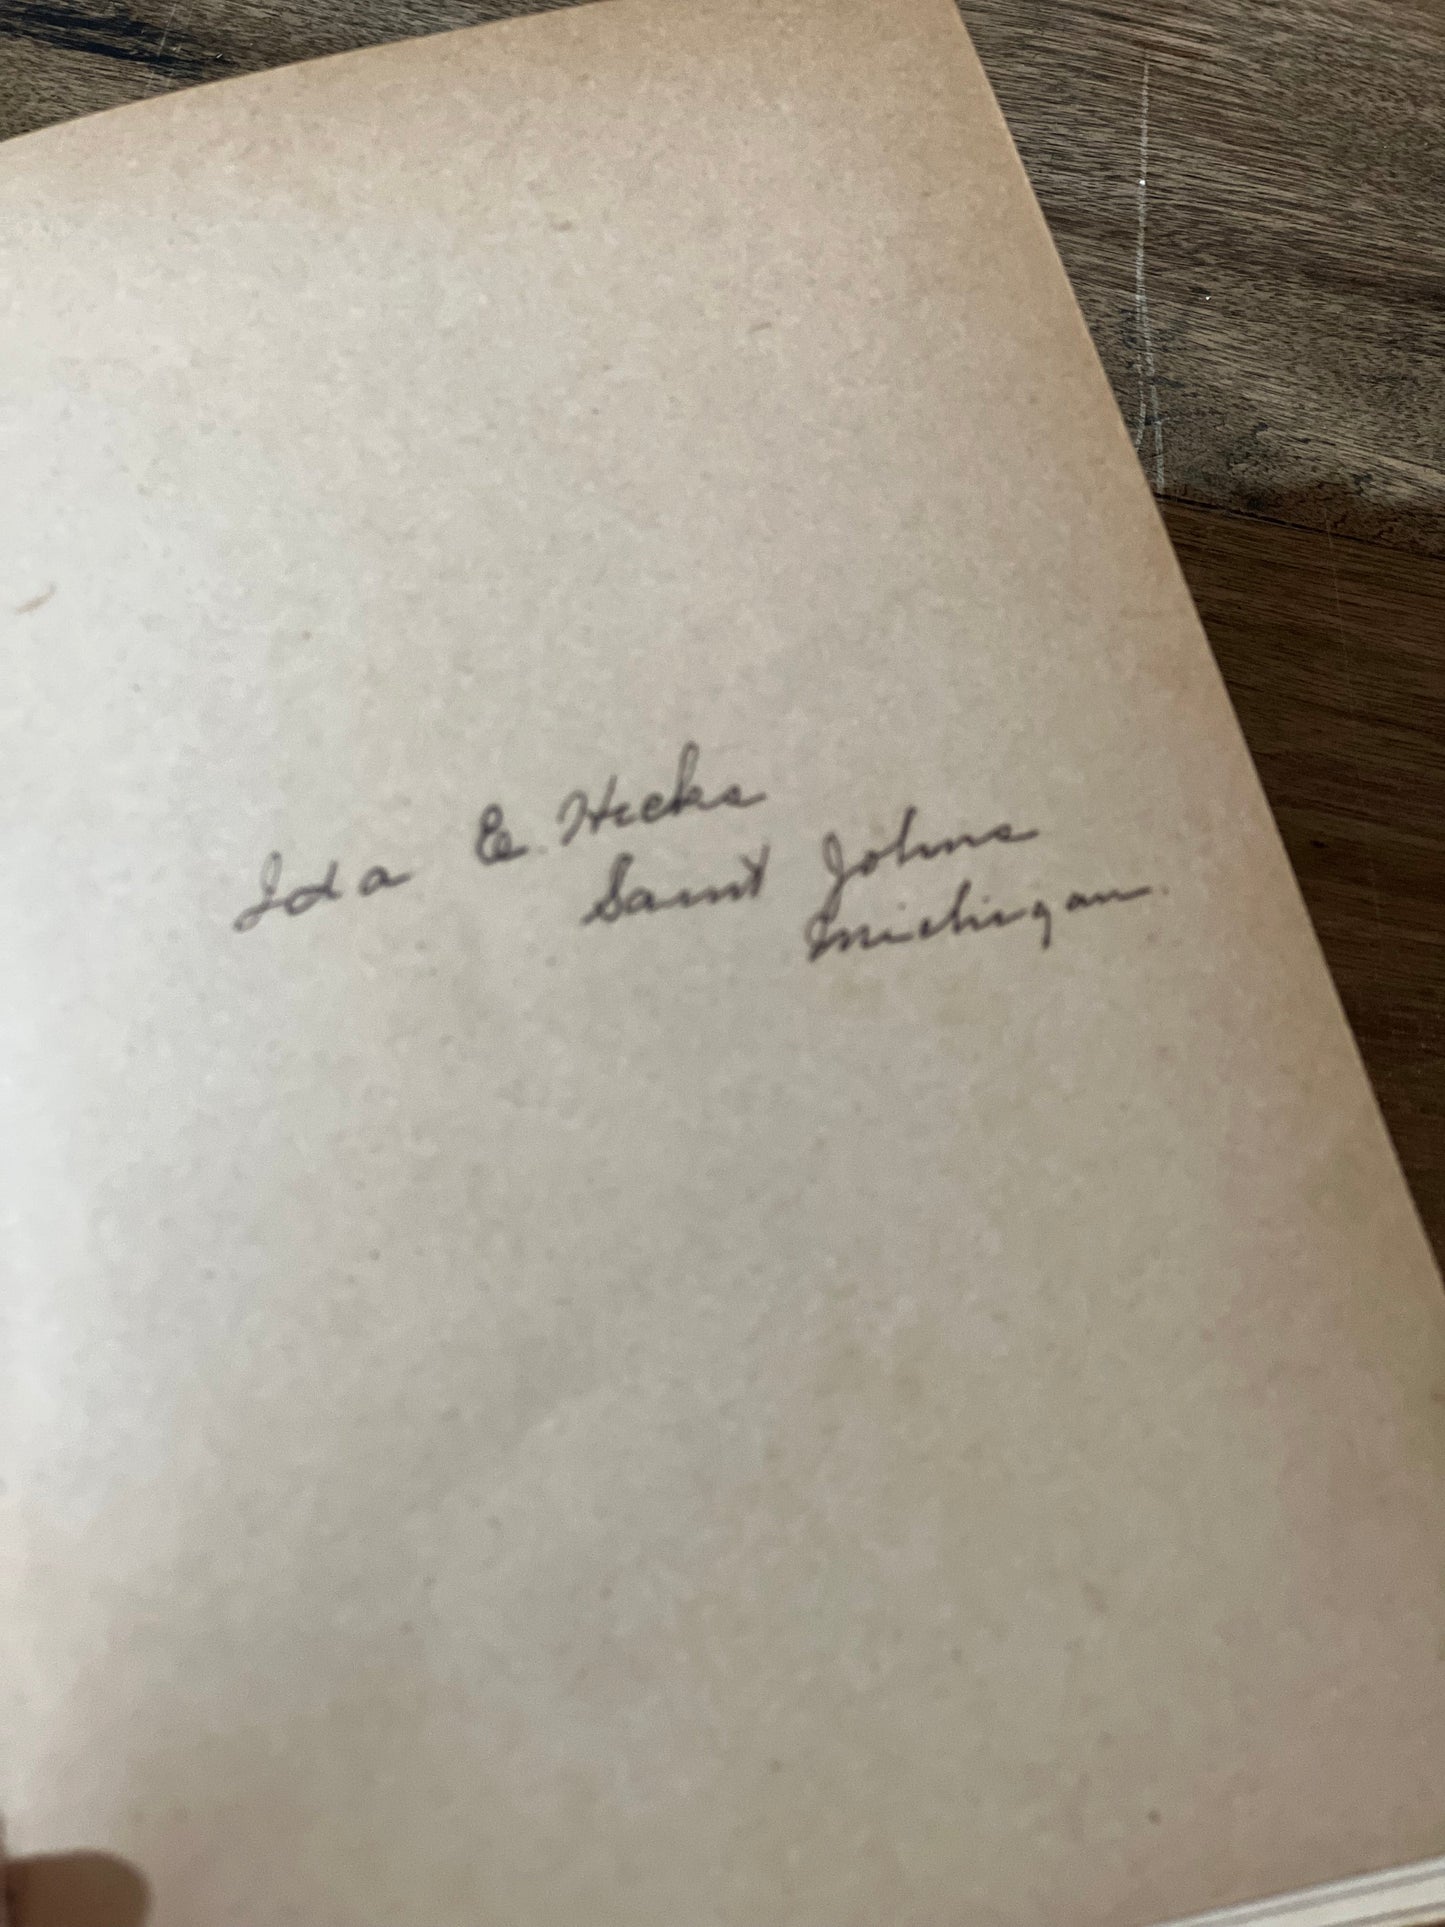 Ida E. Hicks
Saint Johns
Michigan.